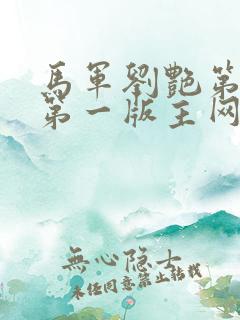 馬軍劉艷第
第一版主网
無心隐士
未经同意禁止转载